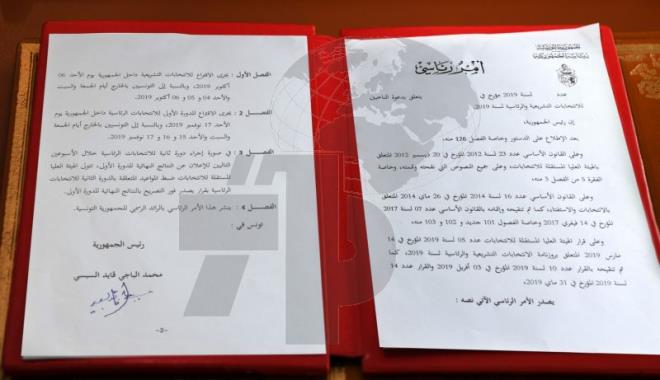 الجمهورية التونسية
رئاسة الجمهورية
أمر رئاسي
عدد لسنة 2019 مؤرخ في
يتعلق بدعوة الناخبين
للانتخابات التشريعية والرئاسية لسنة 2019
إن رئيس الجمهورية،
بعد الإطلاع على الدستور وخاصة الفصل 126 منه،
وعلى القانون الأساسي عدد 23 لسنة 2012 المؤرخ في 20 ديسمبر 2012 المتعلق
بالهيئة العليا المستقلة للانتخابات، وعلى جميع النصوص التي نقحته وتممته، وخاصة
الفقرة 5 من الفصل 3 منه،
وعلى القانون الأساسي عدد 16 لسنة 2014 المؤرخ في 26 ماي 2014 المتعلق
بالانتخابات والاستفتاء، كما تم تنقيحه وإتمامه بالقانون الأساسي عدد 07 لسنة 2017
في 14 فيفري 2017 وخاصة الفصول 101 جديد و 102 و 103 منه،
وعلى قرار الهيئة العليا المستقلة للانتخابات عدد 05 لسنة 2019 المؤرخ في 14
مارس 2019 المتعلق بروزنامة الانتخابات التشريعية والرئاسية لسنة 2019، كما
تم تنقيحها بالقرار عدد 10 لسنة 2019 المؤرخ في 03 أفريل 2019 والقرار عدد 14
لسنة 2019 المؤرخ في 31 ماي 2019،
يصدر الأمر الرئاسي الآتي نصه :
الفصل الأول : يجرى الاقتراع للانتخابات التشريعية داخل الجمهورية يوم الأحد 06
أكتوبر 2019، وبالنسبة إلى التونسيين بالخارج أيام الجمعة والسبت
والأحد 04 و 05 و 06 أكتوبر 2019.
الفصل 2 : يجرى الاقتراع للدورة الأولى للانتخابات الرئاسية داخل الجمهورية يوم
الأحد 17 نوفمبر 2019، وبالنسبة إلى التونسيين بالخارج أيام الجمعة
والسبت والأحد 15 و 16 و 17 نوفمبر 2019.
الفصل 3 : في صورة إجراء دورة ثانية للانتخابات الرئاسية خلال الأسبوعين
التاليين للإعلان عن النتائج النهائية للدورة الأولى، تتولى الهيئة العليا
المستقلة للانتخابات ضبط المواعيد المتعلقة بالدورة الثانية للانتخابات
الرئاسية بقرار يصدر فور التصريح بالنتائج النهائية للدورة الأولى.
الفصل 4 : ينشر هذا الأمر الرئاسي بالرائد الرسمي للجمهورية التونسية.
تونس في :
رئيس الجمهورية
محمد الباجي قايد السبسي
-2-